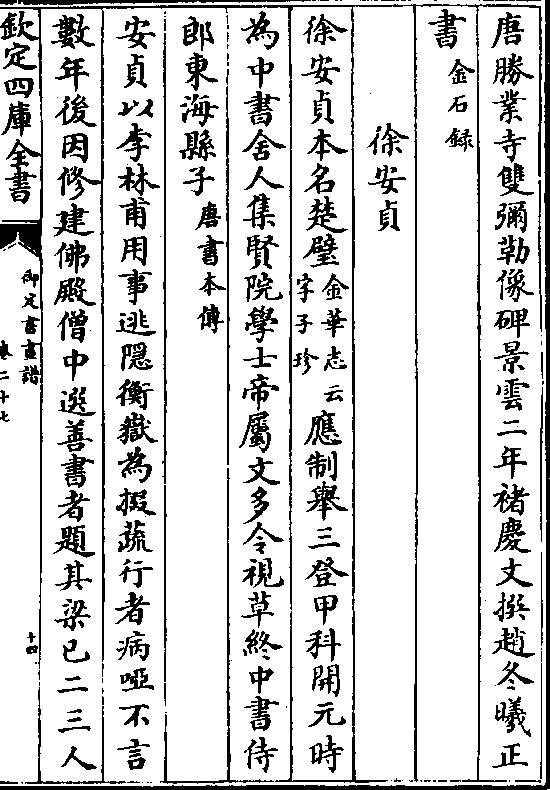 唐勝業寺雙彌勒像碑景雲二年褚慶文撰趙冬曦正
書金石録
徐安貞
徐安貞本名楚璧金華志云字子珍應制舉三登甲科開元時
為中書舍人集賢院學士帝屬文多令視草終中書侍
郎東海縣子唐書本傳
安貞以李林甫用事逃隱衡嶽為掇蔬行者病啞不言
數年後因修建佛殿僧中選善書者題其梁已二三人
欽定四庫全書
御定書畫譜
卷二十七
十四